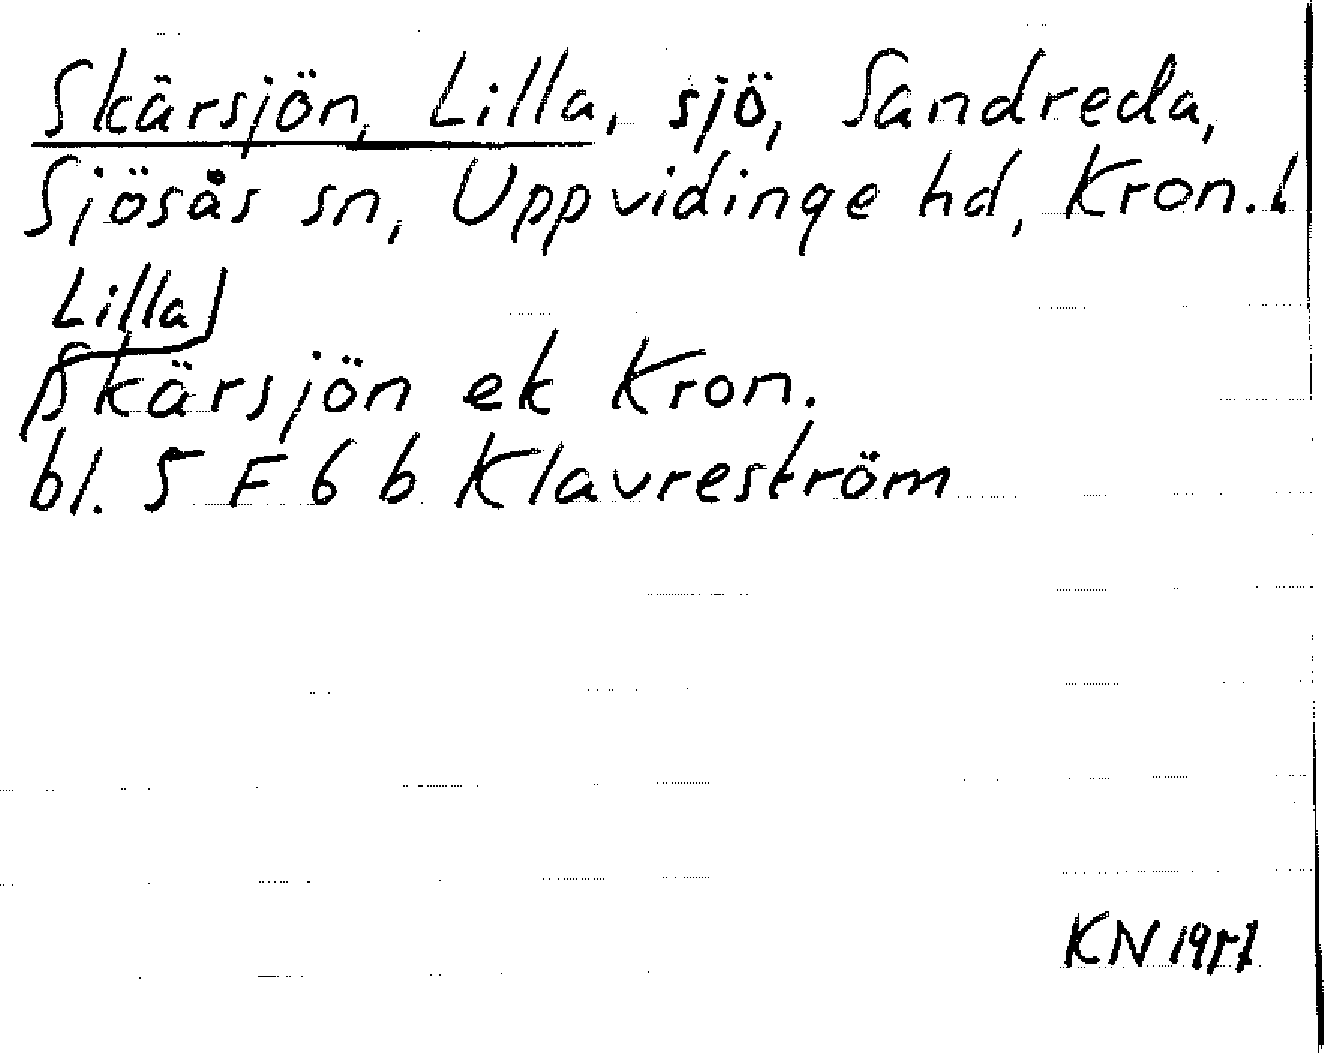 Skärsjön, Lilla, sjö, Sandreda,
Sjösås sn, Uppvidinge hd, Kron. l
Lilla
Skärsjön ek Kron.
bl. 5 F 6 b Klavreström
KN 1957